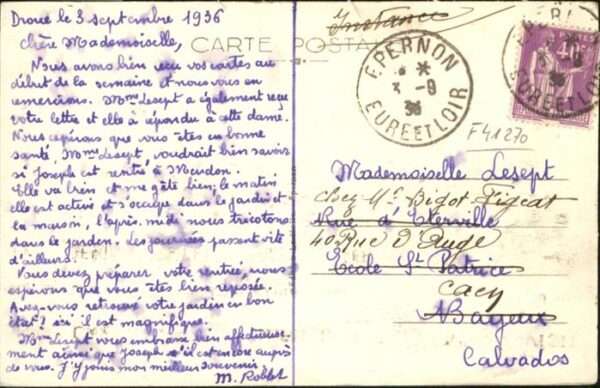 Droue le 3 septembre 1936
Chère Mademoiselle,
Nous avons bien reçu vos cartes au
début de la semaine et nous vous en
remercions. Mme Lesept a également reçu
votre lettre et elle a répondu à cette dame.
Nous espérons que vous êtes en bonne
santé, Mme Lesept, voudrait bien savoir
si Joseph est rentré à Meudon.
Elle va bien et me gâte bien, le matin
elle est active et s'occupe dans le jardin et
la maison, l'après-midi nous tricotons
dans le jardin. Les journées passent vite
d'ailleurs.
Vous devez préparer votre rentrée, nous
espérons que vous êtes bien reposée.
Avez-vous retrouvé votre jardin en bon
état? ici il est magnifique.
Mme Lesept vous embrasse bien affectueuse-
ment ainsi que Joseph s'il est encore auprès
de vous. J'y joins mon meilleur souvenir
M. Roblot
CARTE POSTALE
EPERNON
3-9
36
EURE ET LOIR
40c
EURE ET LOIR
F41270
Mademoiselle Lesept
chez Mr Bigot Figeat
Rue d'Eterville
40 Rue d'Auge
École St Patrice
Caen
Bayeux
Calvados